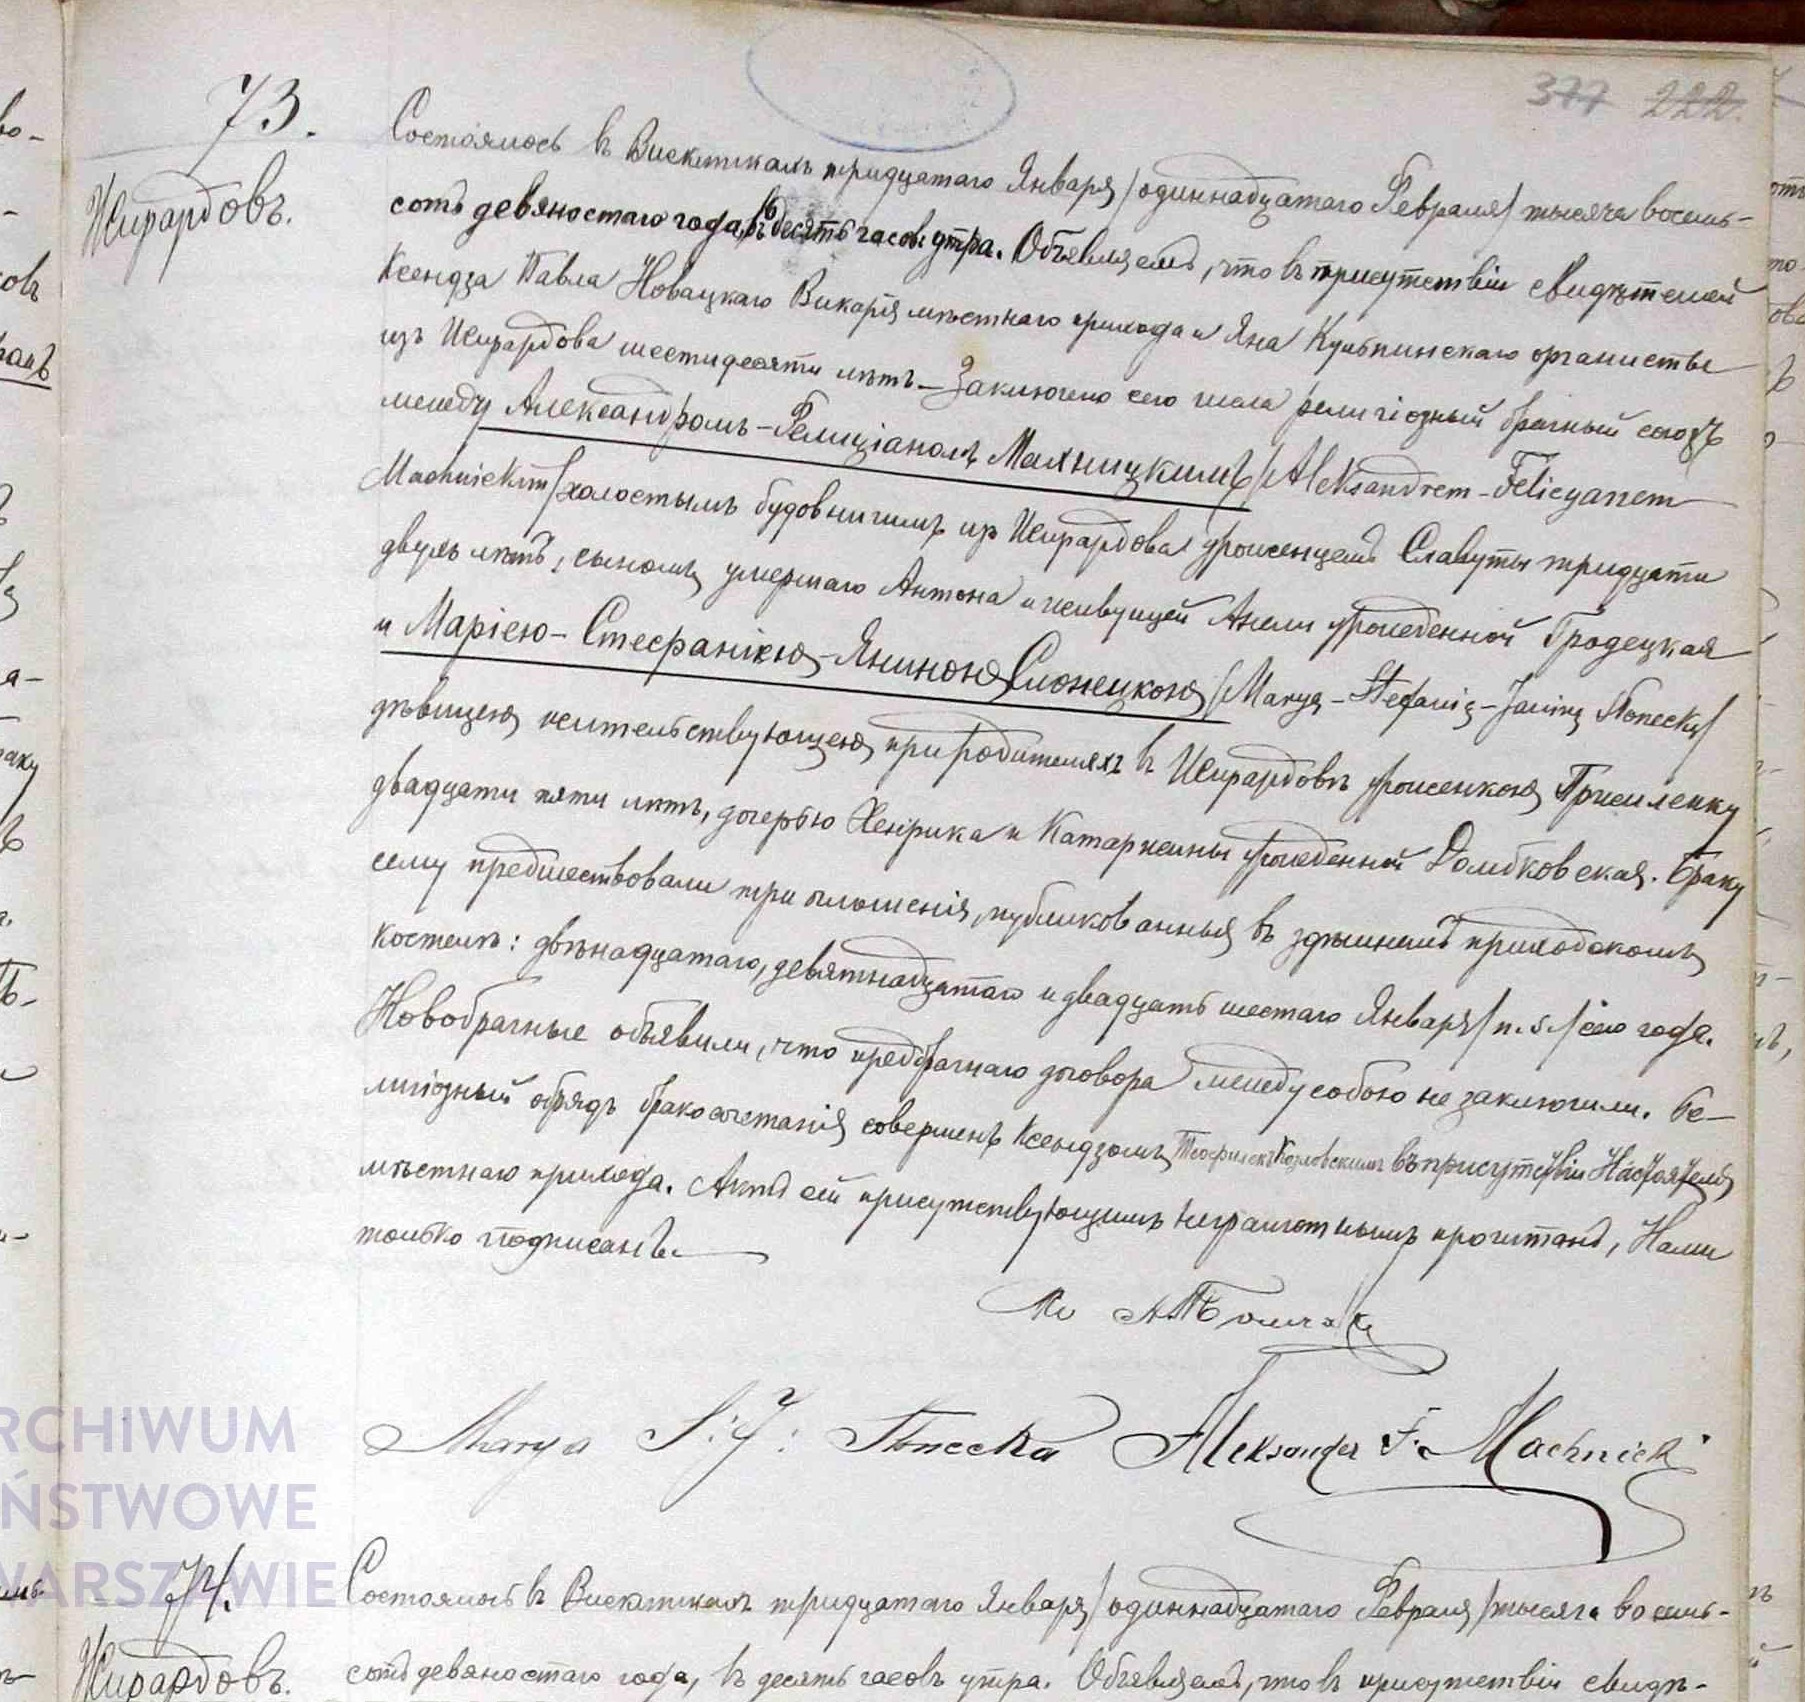 377 222.
73.
Жирардовъ.
Состоялось въ Вискиткахъ тридцатаго Января /одиннадцатаго Февраля/ тысяча восемь-
сотъ девяностаго года, въ десять часовъ утра. Объявляемъ, что въ присутствіи свидѣтелей
Ксендза Павла Новацкаго Викарія мѣстнаго прихода и Яна Кульпинскаго органисты
изъ Жирардова шестидесяти лѣтъ – Заключено сего числа религіозный брачный союзъ
между Александромъ-Фелиціаномъ Махницкимъ /Aleksandrem-Felicyanem
Machnickim/ холостымъ будовничимъ изъ Жирардова уроженцемъ Славуты тридцати
двухъ лѣтъ, сыномъ умершаго Антона и живущей Анели урожденной Гродецкая
и Маріею-Стефаніею-Яниною Слонецкою /Maryą-Stefanią-Janiną Słonecką/
дѣвицею жительствующею при родителяхъ въ Жирардовѣ уроженкою
двадцати пяти лѣтъ, дочерью Хенрика и Катаржины урожденной Домбковская. Браку
сему предшествовали три оглашенія, публикованныя въ здѣшнемъ приходскомъ
костелѣ: двѣнадцатаго, девятнадцатаго и двадцать шестаго Января /n.s./ сего года.
Новобрачные объявили, что предбрачнаго договора между собою не заключили. Ре-
лигіозный обрядъ бракосочетанія совершенъ Ксендзомъ Теофилемъ Козловскимъ въ присутствіи Настоятеля
мѣстнаго прихода. Актъ сей присутствующимъ неграмотнымъ прочитанъ, Нами
только подписанъ.
Marya S: J: Słonecka Aleksander F. Machnicki
ARCHIWUM
PAŃSTWOWE
W WARSZAWIE
74.
Жирардовъ.
Состоялось въ Вискиткахъ тридцатаго Января /одиннадцатаго Февраля/ тысяча восемь-
сотъ девяностаго года, въ десять часовъ утра. Объявляемъ, что въ присутствіи свидѣ-